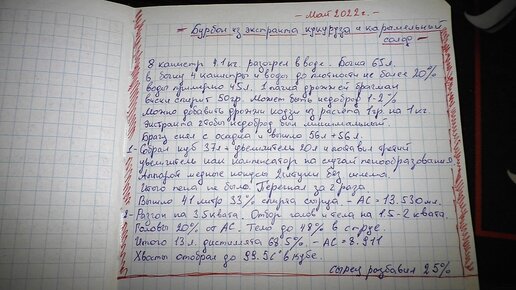 - Май 2022г. -
- Бурбон из экстракта кукуруза и карамельный
солод -
8 канистр 4.1 кг разогрел в воде. Бочка 65л.
В бочки 4 канистры и воды до плотности не более 20%
воды примерно 45л. 1 пачка дрожжей Брагман
виски спирит 50гр. Может быть недоброд 1-2%
Можно добавить дрожжи кодзи из расчета 1гр. на 1кг.
экстракта чтобы недоброд был минимальный.
Брагу снял с осадка и вышло 56л + 56л.
1- Собрал куб 37л + увеличитель 20л и поставил третий
увеличитель как компенсатор на случай пенообразования
Аппарат медные конусы 2 штуки без шлема.
Итого пена не была. Перегнал за 2 раза.
Вышло 41 литр 33% спирта сырца. - АС = 13.530мл.
2- Разгон на 3.5 квата. Отбор голов и тела на 1.5-2 квата.
Головы 20% от АС. Тело до 48% в струе.
Итого 13л. дистиллята 68.5%. - АС = 8.911
Хвосты отобрал до 99.5С в кубе.
сырец разбавил 25%